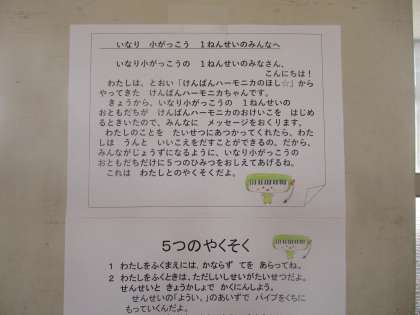 いなり 小がっこう 1ねんせいのみんなへ
いなり小がっこうの 1ねんせいのみなさん、
こんにちは!
わたしは、とおい「けんばんハーモニカのほし☆」から
やってきた けんばんハーモニカちゃんです。
きょうから、いなり小がっこうの 1ねんせいの
おともだちが けんばんハーモニカのおけいこを はじめ
るときいたので、みんなに メッセージをおくります。
わたしのことを たいせつにあつかってくれたら、わた
しは うんと いいこえをだすことができるの。だから、
みんながじょうずになるように、いなり小がっこうの
おともだちだけに5つのひみつをおしえてあげるね。
これは わたしとのやくそくだよ。
5つのやくそく
1 わたしをふくまえには、かならず てを あらってね。
2 わたしをふくときは、ただしいしせいがたいせつだよ。
せんせいと きょうかしょで かくにんしよう。
せんせいの「ようい。」のあいずで パイプをくちに
もっていくんだよ。